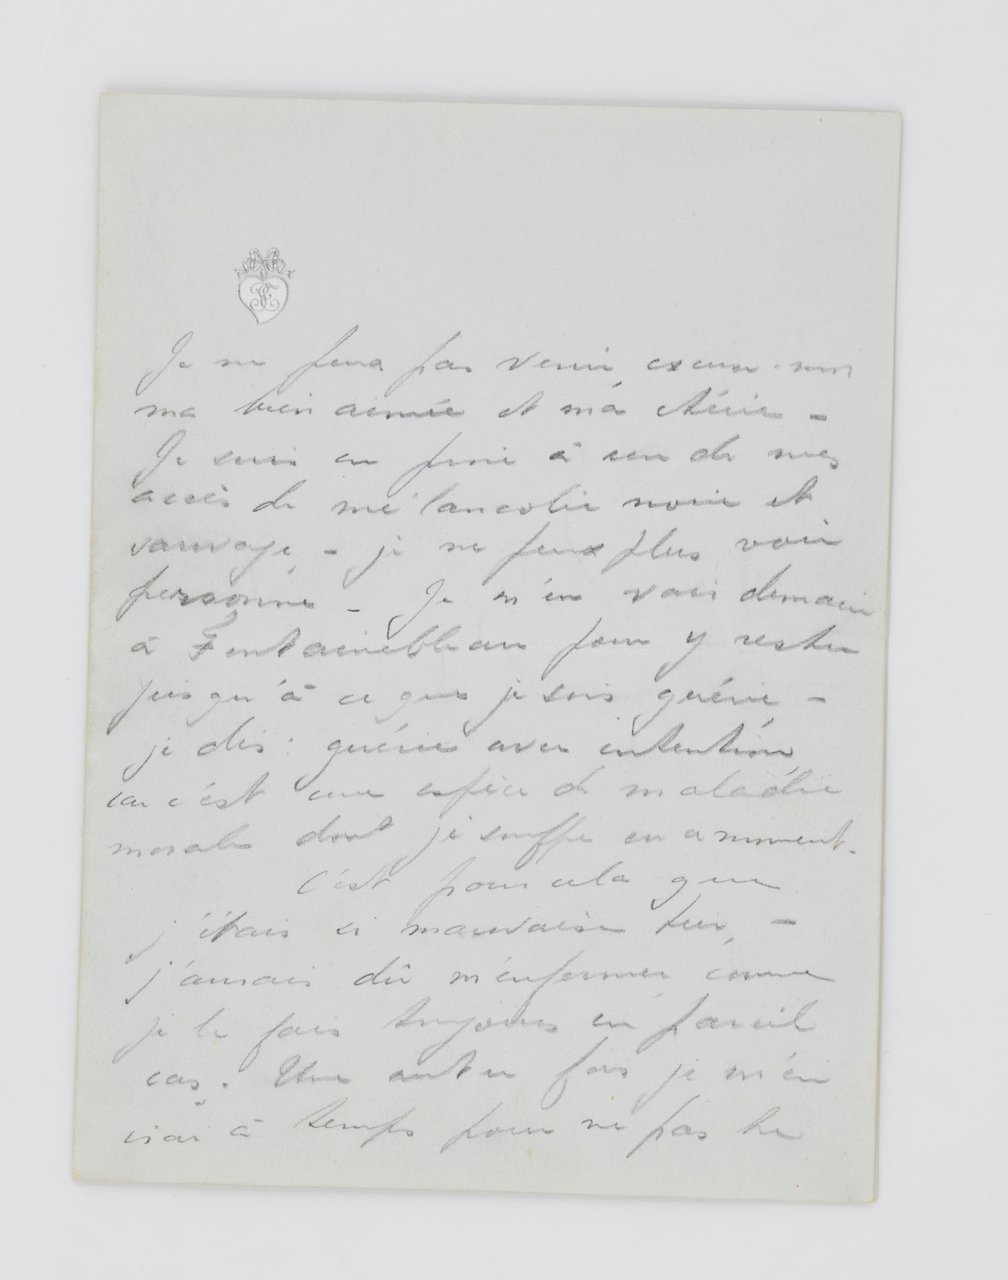 Je ne peux pas venir excuse-moi
ma bien aimée et ma chérie –
Je suis en proie à un de mes
accès de mélancolie noire et
sauvage – je ne peux plus voir
personne – Je m'en vais demain
à Fontainebleau pour y rester
jusqu'à ce que je sois guérie –
je dis : guérie avec intention
car c'est une espèce de maladie
morale dont je souffre en ce moment.
C'est pour cela que
j'étais si mauvaise hier –
j'aurais dû m'enfermer comme
je le fais toujours en pareil
cas. Une autre fois je m'en
irai à temps pour ne pas